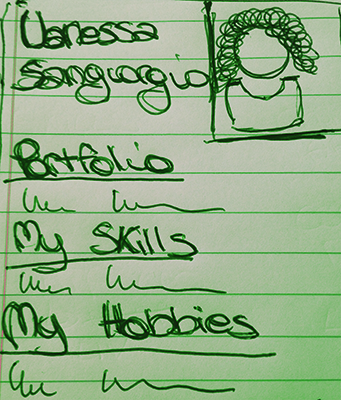 Vanessa
Sangiorgio
Portfolio
My Skills
My Hobbies